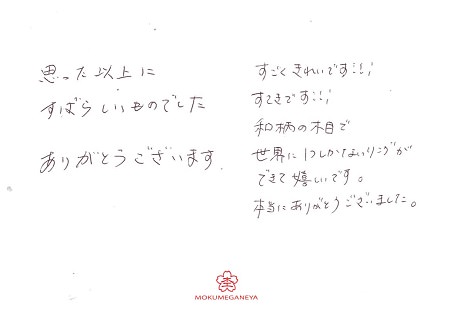 思った以上に
すばらしいものでした
ありがとうございます.
すごくきれいです!!!
すてきです!!!
和柄の木目で
世界に1つしかないリングが
できて嬉しいです。
本当にありがとうございました。
MOKUMEGANEYA